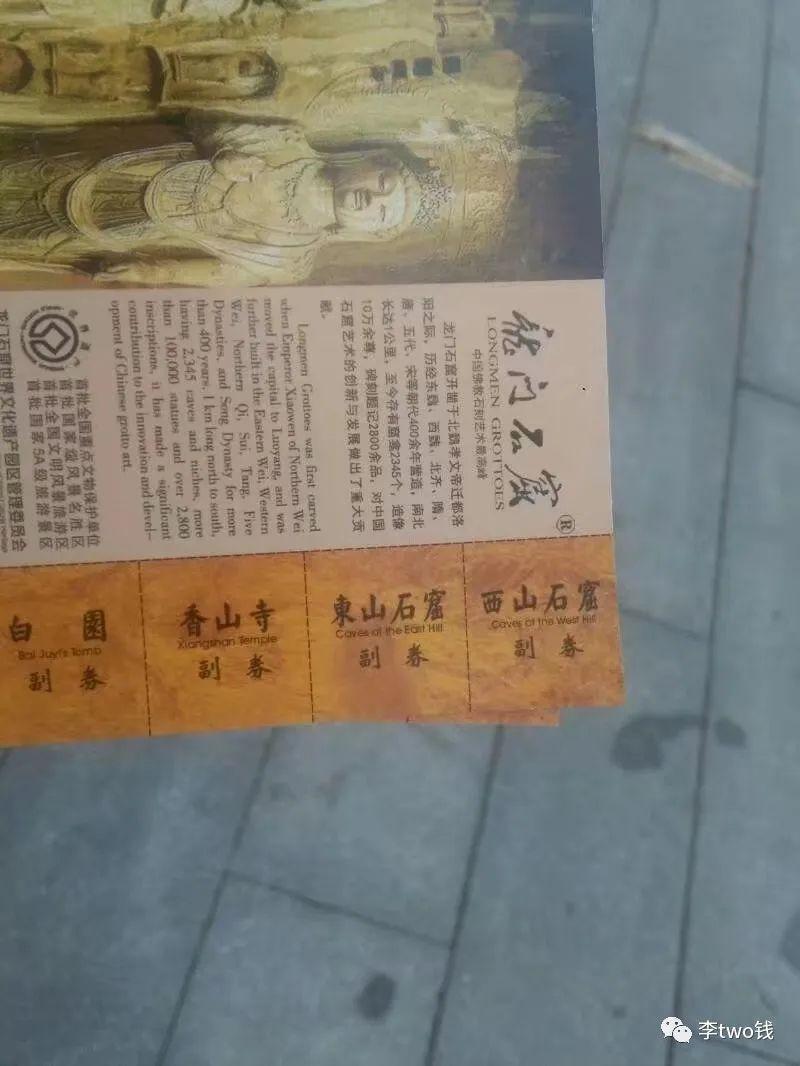 龙门石窟®
LONGMEN GROTTOES
中国佛教石刻艺术最高峰
龙门石窟开凿于北魏孝文帝迁都洛
阳之际，历经东魏、西魏、北齐、隋、
唐、五代、宋等朝代400余年营造，南北
长达1公里，至今存有窟龛2345个，造像
10万余尊，碑刻题记2800余品，对中国
石窟艺术的创新与发展做出了重大贡
献。
Longmen Grottoes was first carved
when Emperor Xiaowen of Northern Wei
moved the capital to Luoyang, and was
further built in the Eastern Wei, Western
Wei, Northern Qi, Sui, Tang, Five
Dynasties, and Song Dynasty for more
than 400 years. 1 km long north to south,
having 2,345 caves and niches, more
than 100,000 statues and over 2,800
inscriptions, it has made a significant
contribution to the innovation and devel-
opment of Chinese grotto art.
首批全国重点文物保护单位
首批国家级风景名胜区
首批全国文明风景旅游区
首批国家5A级旅游景区
龙门石窟世界文化遗产园区管理委员会
西山石窟
Caves of the West Hill
副 券
東山石窟
Caves of the East Hill
副 券
香山寺
Xiangshan Temple
副 券
白園
Bai Juyi's Tomb
副 券
李two钱